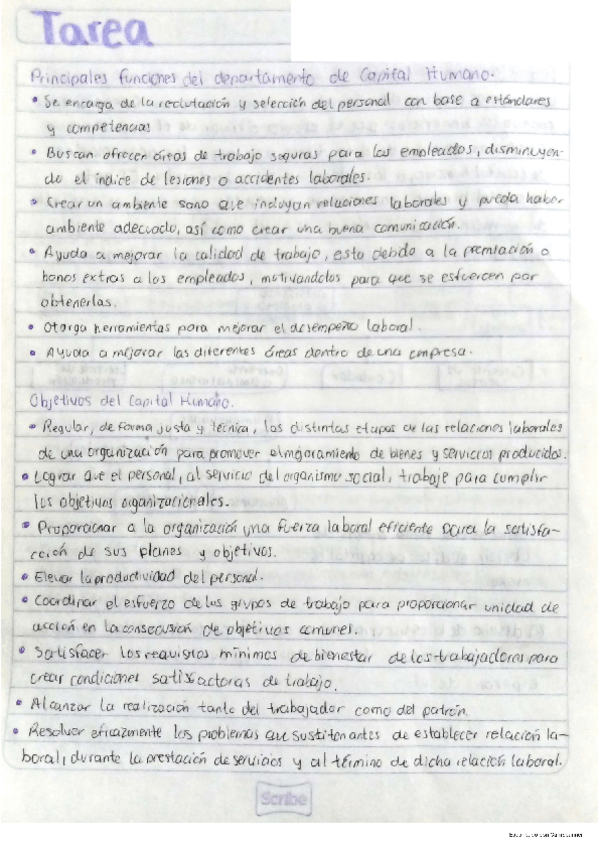 Tarea
Principales funciones del departamento de Capital Humano.
• Se encarga de la reclutación y selección del personal con base a estándares
y competencias
• Buscan ofrecer áreas de trabajo seguras para los empleados, disminuyen-
do el índice de lesiones o accidentes laborales.
• Crear un ambiente sano que incluyan relaciones laborales y pueda haber
ambiente adecuado, así como crear una buena comunicación.
• Ayuda a mejorar la calidad de trabajo, esto debido a la premiación o
bonos extras a los empleados, motivandolos para que se esfuercen por
obtenerlas.
• Otorga herramientas para mejorar el desempeño laboral.
• Ayuda a mejorar las diferentes áreas dentro de una empresa.
Objetivos del Capital Humano.
• Regular, de forma justa y técnica, las distintas etapas de las relaciones laborales
de una organización para promover el mejoramiento de bienes y servicios producidos.
• Lograr que el personal, al servicio del organismo social, trabaje para cumplir
los objetivos organizacionales.
• Proporcionar a la organización una fuerza laboral eficiente para la satisfa-
cción de sus planes y objetivos.
• Elevar la productividad del personal.
• Coordinar el esfuerzo de los grupos de trabajo para proporcionar unidad de
acción en la consecusión de objetivos comunes.
• Satisfacer los requisitos mínimos de bienestar de los trabajadores para
crear condiciones satisfactoras de trabajo.
• Alcanzar la realización tanto del trabajador como del patrón.
• Resolver eficazmente los problemas que susti tenantes de establecer relación la-
boral, durante la prestación de servicios y al término de dicha relación laboral.
Scribe